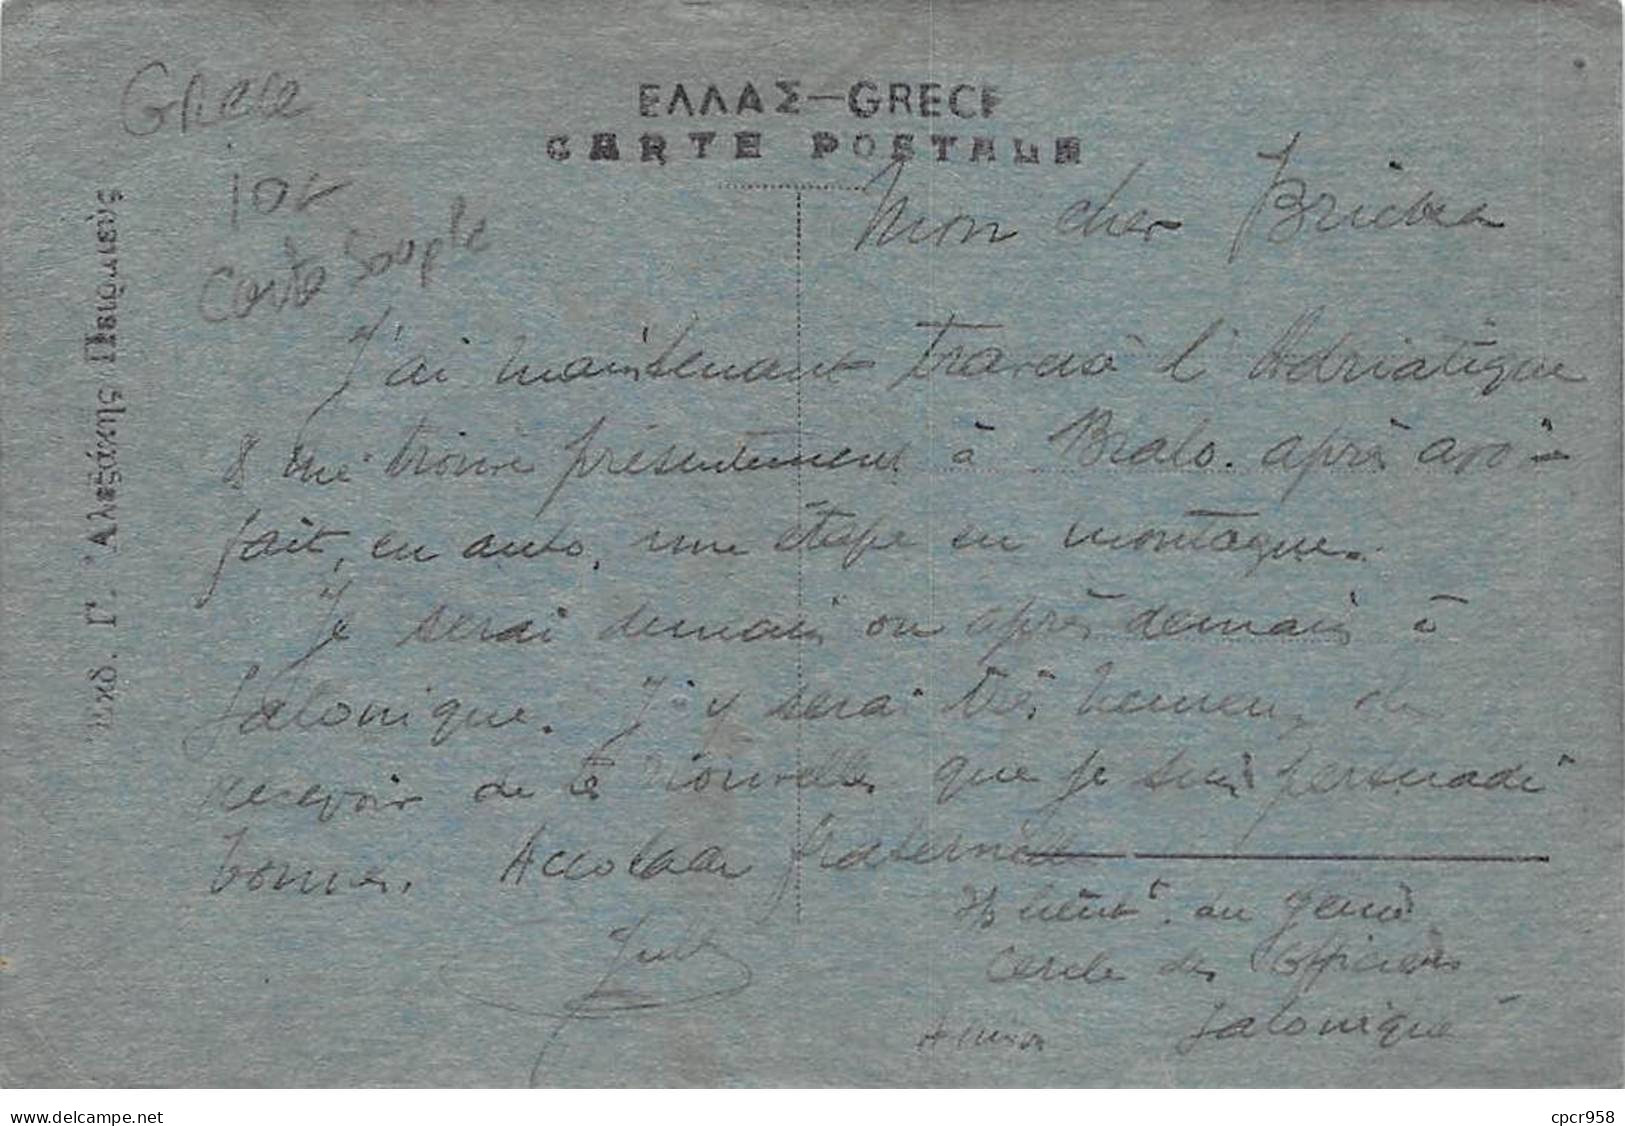 ΕΛΛΑΣ—GRECE
CARTE POSTALE
Grece
10€
Carte Souple
Ἐκδ. Γ. Ἀλεξάκης Πειραιεύς
Mon cher
J'ai maintenant traversé l'Adriatique
& me trouve présentement à Bralo. après avoir
fait, en auto, une étape en montagne.
Je serai demain ou après demain à
Salonique. J'y serai très heureux de
recevoir de tes nouvelles que je suis persuadé
bonnes. Accolade fraternelle
Lieutt. du génie
Cercle des Officiers
Salonique
delcampe.net
cpcr958